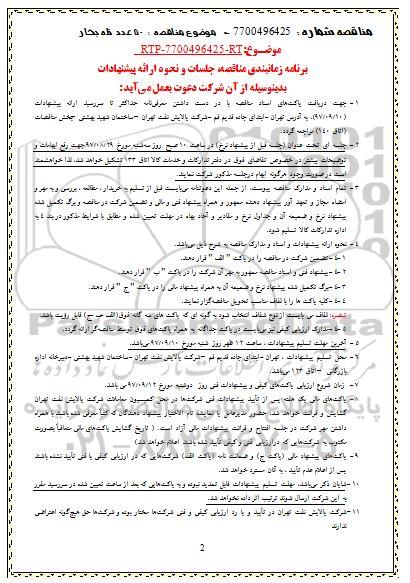 مناقصه شماره : 7700496425 - موضوع مناقصه : 50 عدد تله بخار
موضــوع: RTP-7700496425-RT
برنامه زمانبندی مناقصه، جلسات و نحوه ارائه پیشنهادات
بدینوسیله از آن شرکت دعوت بعمل می‌آید:
۱- جهت دریافت پاکت‌های اسناد مناقصه با در دست داشتن معرفی‌نامه حداکثر تا سررسید ارائه پیشنهادات
(۹۷/۰۹/۱۰)، به آدرس تهران-ابتدای جاده قدیم قم –شرکت پالایش نفت تهران –ساختمان شهید بهشتی -بخش مناقصات
(اتاق ۱۴۰) مراجعه گردد.
۲- جلسه ای تحت عنوان (جلسه قبل از پیشنهاد نرخ) در ساعت ۱۰ صبح روز سه‌شنبه مورخ ۹۷/۰۸/۲۹ جهت رفع ابهامات و
توضیحات بیشتر در خصوص تقاضای فوق در دفتر تدارکات و خدمات کالا اتاق ۱۳۳ تشکیل خواهد شد. لذا خواهشمند
است در صورت وجود هرگونه ابهام در جلسه مذکور شرکت نمایند.
۳- تمام اسناد و مدارک مناقصه پیوست، از جمله این دعوتنامه می‌بایست قبل از تسلیم به خریدار، مطالعه ، بررسی و به مهر و
امضاء مجاز و تعهد آور پیشنهاد دهنده ممهور و همراه پیشنهاد فنی و مالی و تضمین شرکت در مناقصه و برگ تکمیل شده
پیشنهاد نرخ و ضمیمه آن و جداول نرخ و مقادیر و آحاد بهاء در مهلت تعیین شده و مطابق با شرایط مذکور در بند ۴ به
اداره تدارکات کالا تسلیم شود.
۴- نحوه ارائه پیشنهادات و اسناد و مدارک مناقصه به شرح ذیل می‌باشد.
۴-۱-تضمین شرکت در مناقصه را در پاکت " الف " قرار دهند.
۴-۲-پیشنهاد فنی و اسناد مناقصه ممهور به مهر آن شرکت را در پاکت " ب " قرار دهند.
۴-۳-برگ تکمیل شده پیشنهاد نرخ و ضمیمه آن به همراه پیشنهاد مالی را در پاکت " ج " قرار دهند.
۴-۴-کلیه پاکت ها را با لفاف مناسب تحویل مناقصه‌گزار نمایند.
تبصره: لفاف می بایست از نوع شفاف انتخاب شود به گونه ای که پاکت های سه گانه فوق (الف-ب-ج) قابل رؤیت باشد.
۴-۵-مدارک ارزیابی کیفی نیز می‌بایست در پاکت جداگانه به همراه پاکت‌های فوق توسط مناقصه‌گر ارائه گردد.
۵- آخرین مهلت تسلیم پیشنهادات ، ساعت ۱۲ ظهر روز شنبه مورخ ۹۷/۰۹/۱۰ می‌باشد.
۶- محل تسلیم پیشنهادات ، تهران –ابتدای جاده قدیم قم –شرکت پالایش نفت تهران-ساختمان شهید بهشتی –دبیرخانه اداره
بازرگانی –اتاق ۱۲۳ می‌باشد.
۷- زمان شروع ارزیابی پاکت‌های کیفی و پیشنهادات فنی روز دوشنبه مورخ ۹۷/۰۹/۱۲ می باشد.
۸- پاکت‌های مالی یک هفته پس از تأیید پیشنهادات فنی شرکت‌ها در محل کمیسیون معاملات شرکت پالایش نفت تهران
گشایش و قرائت خواهد شد. حضور مدیرعامل یا نماینده تام الاختیار پیشنهاد دهندگان که کتباً معرفی شده باشند با همراه
داشتن مهر شرکت در جلسه افتتاح و قرائت پیشنهادات مالی آزاد است. ( تاریخ گشایش پاکت‌های مالی متعاقباً بصورت
مکتوب به شرکت‌هایی که در ارزیابی فنی و کیفی تأیید شده باشند اعلام خواهد شد)
۹- پاکت‌های پیشنهاد مالی (پاکت ج) و ضمانت نامه (پاکت الف) شرکت‌هایی که در ارزیابی کیفی یا فنی تأیید نشده باشند
پس از اعلام عدم تأیید ، به آنان مسترد خواهد شد.
۱۰-شایان ذکر می‌باشد، مهلت تسلیم پیشنهادات قابل تمدید نبوده و به پاکت‌هایی که بعد از ساعت تعیین شده در سررسید مقرر
به این شرکت ارسال شوند ترتیب اثر داده نخواهد شد.
۱۱-شرکت پالایش نفت تهران در تأیید و یا رد ارزیابی کیفی و فنی شرکت‌ها مختار بوده و شرکت‌ها حق هیچ‌گونه اعتراضی
ندارند
2